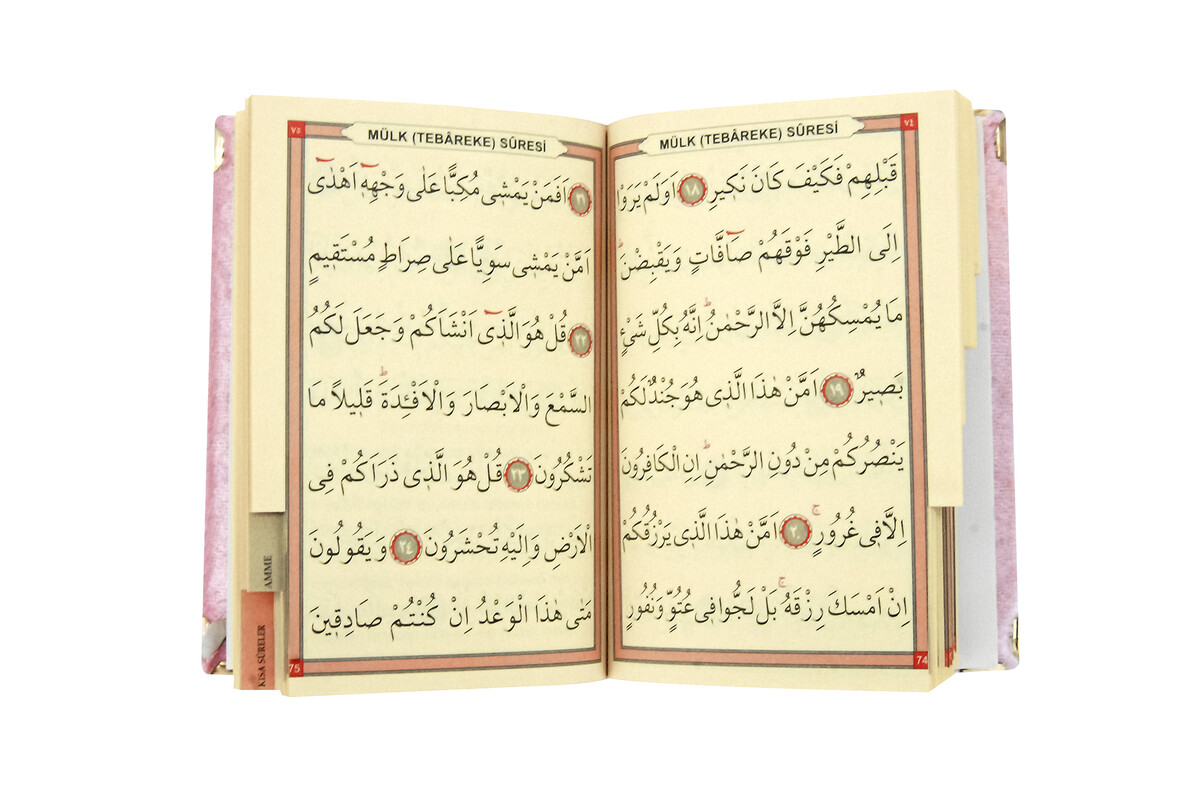 ٧٤
MÜLK (TEBÂREKE) SÛRESİ
قَبْلِهِمْ فَكَيْفَ كَانَ نَكٖيرِ ﴿١٨﴾ اَوَلَمْ يَرَوْا
اِلَى الطَّيْرِ فَوْقَهُمْ صَٓافَّاتٍ وَيَقْبِضْنَۜ
مَا يُمْسِكُهُنَّ اِلَّا الرَّحْمٰنُۜ اِنَّهُ بِكُلِّ شَیْءٍ
بَصٖيرٌ ﴿١٩﴾ اَمَّنْ هٰذَا الَّذٖى هُوَ جُنْدٌ لَكُمْ
يَنْصُرُكُمْ مِنْ دُونِ الرَّحْمٰنِۜ اِنِ الْكَافِرُونَ
اِلَّا فٖى غُرُورٍۚ ﴿٢٠﴾ اَمَّنْ هٰذَا الَّذٖى يَرْزُقُكُمْ
اِنْ اَمْسَكَ رِزْقَهُۚ بَلْ لَجُّوا فٖى عُتُوٍّ وَنُفُورٍ
74
٧٥
MÜLK (TEBÂREKE) SÛRESİ
﴿٢١﴾ اَفَمَنْ يَمْشٖى مُكِبًّا عَلٰى وَجْهِهٖٓ اَهْدٰٓى
اَمَّنْ يَمْشٖى سَوِيًّا عَلٰى صِرَاطٍ مُسْتَقٖيمٍ
﴿٢٢﴾ قُلْ هُوَ الَّذٖٓى اَنْشَاَكُمْ وَجَعَلَ لَكُمُ
السَّمْعَ وَالْاَبْصَارَ وَالْاَفْـِٔدَةَۜ قَلٖيلًا مَا
تَشْكُرُونَ ﴿٢٣﴾ قُلْ هُوَ الَّذٖى ذَرَاَكُمْ فِى
الْاَرْضِ وَاِلَيْهِ تُحْشَرُونَ ﴿٢٤﴾ وَيَقُولُونَ
مَتٰى هٰذَا الْوَعْدُ اِنْ كُنْتُمْ صَادِقٖينَ
75
AMME
KISA SÛRELER